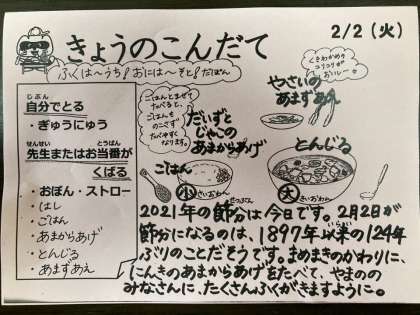 2/2(火)
きょうのこんだて
ふくは〜うち!おには〜そと!だぽん
くきわかめの
コリコリが
おいし〜
やさいの
あまずあえ
じぶん
自分でとる
・ぎゅうにゅう
せんせい とうばん
先生またはお当番が
くばる
・おぼん・ストロー
・はし
・ごはん
・あまからあげ
・とんじる
・あまずあえ
ごはんとまぜて
たべると、
ごはんも
のこさず
たべやすく
なります。
だいずと
じゃこの
あまからあげ
とんじる
ごはん
小 さいおわん
大 さいおわん
せつぶん
2021年の節分は今日です。2月2日が
節分になるのは、1897年以来の124年
ぶりのことだそうです。まめまきのかわりに、
にんきのあまからあげをたべて、やまのの
みなさんに、たくさんふくがきますように。